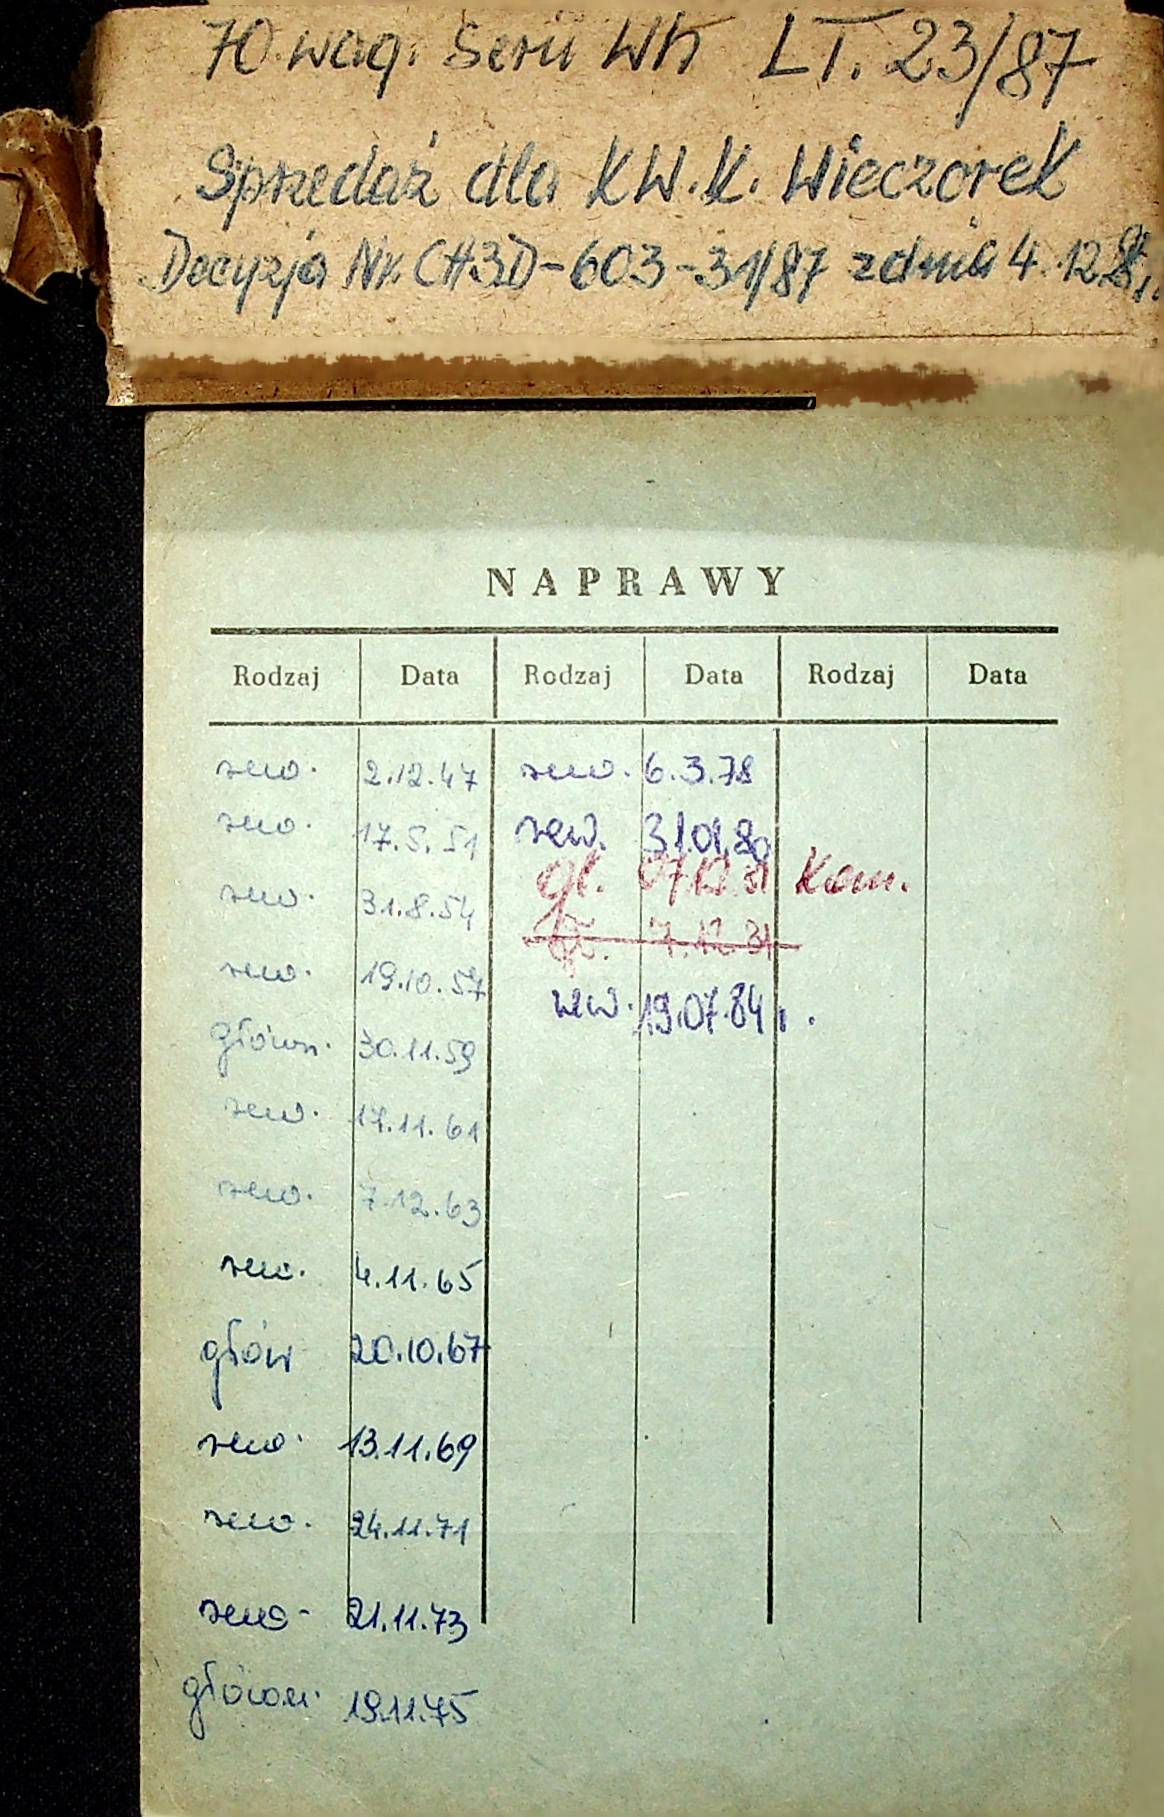 70 wag. Serii Wh LT. 23/87
Sprzedaż dla KW.K. Wieczorek
Decyzja Nr. CH3D-603-31/87 z dnia 4.12.
NAPRAWY
Rodzaj Data Rodzaj Data Rodzaj Data
rew. 2.12.47 rew. 6.3.78
rew. 17.5.51 rew. 31.01.80
gł. 07.12.81 Kom.
rew. 31.8.54 gł. 7.12.81
rew. 19.10.57 rew. 19.07.84 r.
główn. 30.11.59
rew. 17.11.61
rew. 7.12.63
rew. 4.11.65
głów 20.10.67
rew. 13.11.69
rew. 24.11.71
rew. 21.11.73
główn. 19.11.75